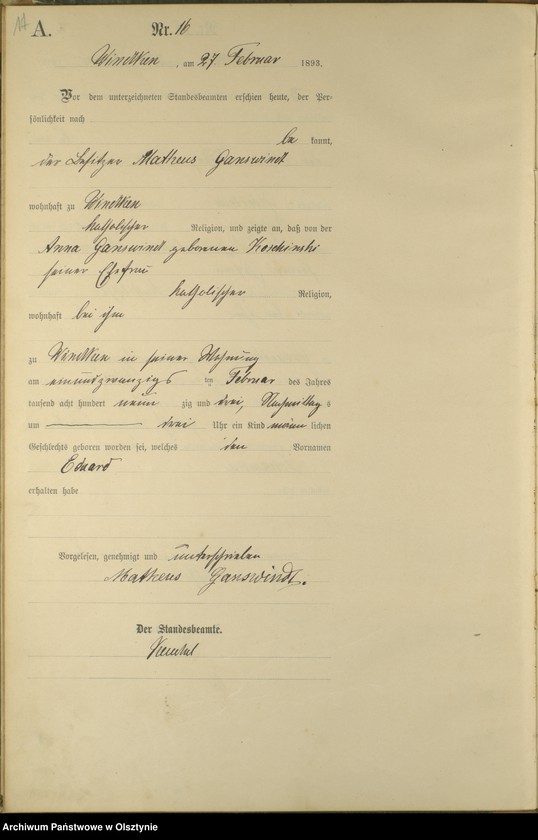 A.
Nr. 16
Windtken, am 27 Februar 1893.
Vor dem unterzeichneten Standesbeamten erschien heute, der Per-
sönlichkeit nach
be kannt,
der Besitzer Matheus Ganswindt
wohnhaft zu Windtken
katholischer Religion, und zeigte an, daß von der
Anna Ganswindt geborenen Koschinski
seiner Ehefrau
katholischer Religion,
wohnhaft bei ihm
zu Windtken in seiner Wohnung
am einundzwanzigs ten Februar des Jahres
tausend acht hundert neun zig und drei, Nachmittag s
um drei Uhr ein Kind männ lichen
Geschlechts geboren worden sei, welches den Vornamen
Eduard
erhalten habe
Vorgelesen, genehmigt und unterschrieben
Matheus Ganswindt.
Der Standesbeamte.
Archiwum Państwowe w Olsztynie